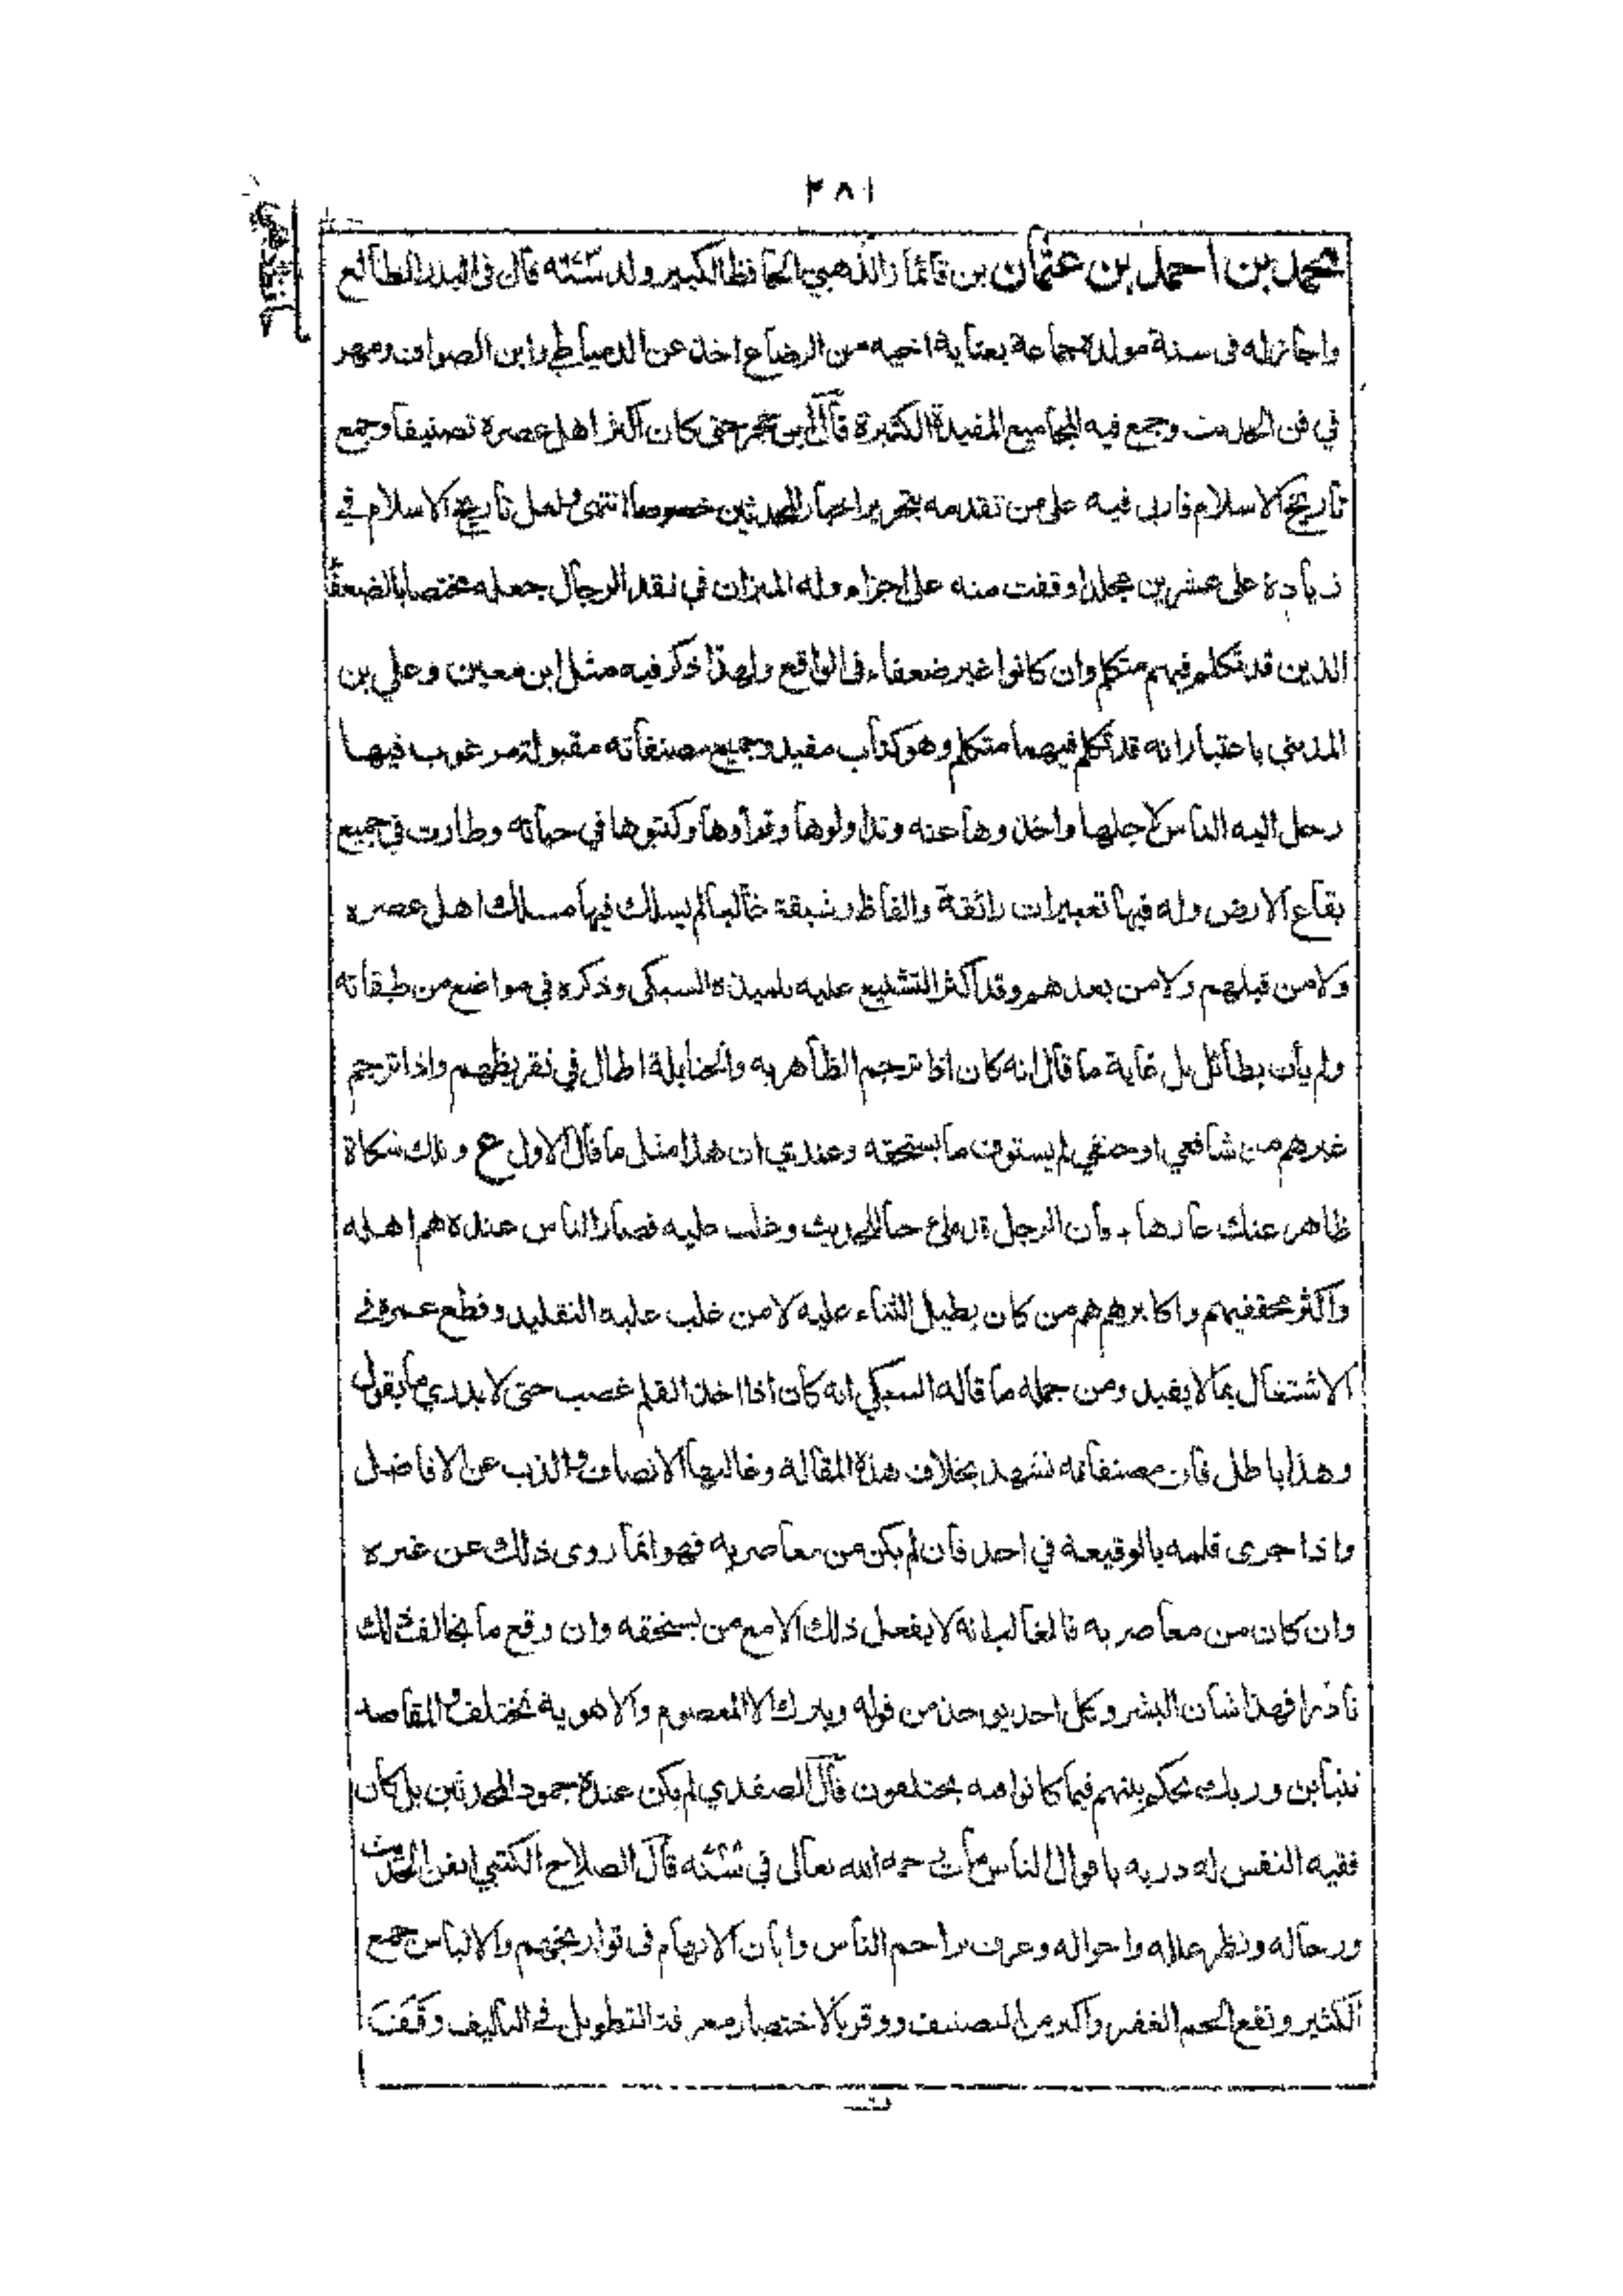 ٣٨١
محمد بن احمد بن عثمان بن قائماز الذهبي الحافظ الكبير ولد سنة قال في البدر الطالع
واجاز له فى سنة مولده جماعة بعناية اخيه من الرضاع اخذ عن الدمياطي وابن الصواف ومهر
في فن الحديث وجمع فيه المجاميع المفيدة الكثيرة قال ابن حجر حتى كان اكثر اهل عصره تصنيفا وجمع
تاريخ الاسلام فاربى فيه على من تقدمه بتحرير اخبار المحدثين خصوصا انتهى ولعل تاريخ الاسلام في
زيادة على عشرين مجلدا وقفت منه على اجزاء وله الميزان في نقد الرجال جعله مختصا بالضعفاء
الذين قد تكلم فيهم متكلم وان كانوا غير ضعفاء فى الواقع ولهذا ذكر فيه مثل ابن معين وعلي بن
المديني باعتبار انه قد تكلم فيهما متكلم وهو كتاب مفيد وجميع مصنفاته مقبولة مرغوب فيها
رحل اليه الناس لاجلها واخذوها عنه وتداولوها وقرأوها وكتبوها في حياته وطارت في جميع
بقاع الارض وله فيها تعبيرات رائقة والفاظ رشيقة غالبا لم يسلك فيها مسلك اهل عصره
ولا من قبلهم ولا من بعدهم وقد اكثر التشنيع عليه تلميذه السبكى وذكره في مواضع من طبقاته
ولم يأت بطائل بل غاية ما قال انه كان اذا ترجم الظاهرية والحنابلة اطال في تقريظهم واذا ترجم
غيرهم من شافعي او حنفي لم يستوف ما يستحقه وعندي ان هذا مثل ما قال الاول ع وتلك شكاة
ظاهر عنك عارها ، فان الرجل قد ملئ حبا للحديث وغلب عليه فصار الناس عنده هم اهله
واكثر محققيهم واكابرهم هم من كان يطيل الثناء عليه لا من غلب عليه التقليد وقطع عمره في
الاشتغال بما لا يفيد ومن جملة ما قاله السبكي انه كان اذا اخذ القلم غضب حتى لا يدري ما يقول
وهذا باطل فان مصنفاته تشهد بخلاف هذه المقالة وغالبها الانصاف والذب عن الافاضل
واذا جرى قلمه بالوقيعة في احد فان لم يكن من معاصريه فهو انما روى ذلك عن غيره
وان كان من معاصريه فالغالب انه لا يفعل ذلك الا مع من يستحقه وان وقع ما يخالف ذلك
نادرا فهذا شان البشر وكل احد يوخذ من قوله ويترك الا المعصوم والاهوية تختلف والمقاصد
تتباين وربك يحكم بينهم فيما كانوا فيه يختلفون قال الصفدي لم يكن عنده جمود المحدثين بل كان
فقيه النفس له دربة باقوال الناس مات رحمه الله تعالى في سنة قال الصلاح الكتبي اتقن الحديث
ورجاله ونظر علله واحواله وعرف تراجم الناس وابان الابهام فى تواريخهم والالباس جمع
الكثير ونفع الجم الغفير واكثر من التصنيف ووفر بالاختصار معرفة التطويل في التاليف وقفت